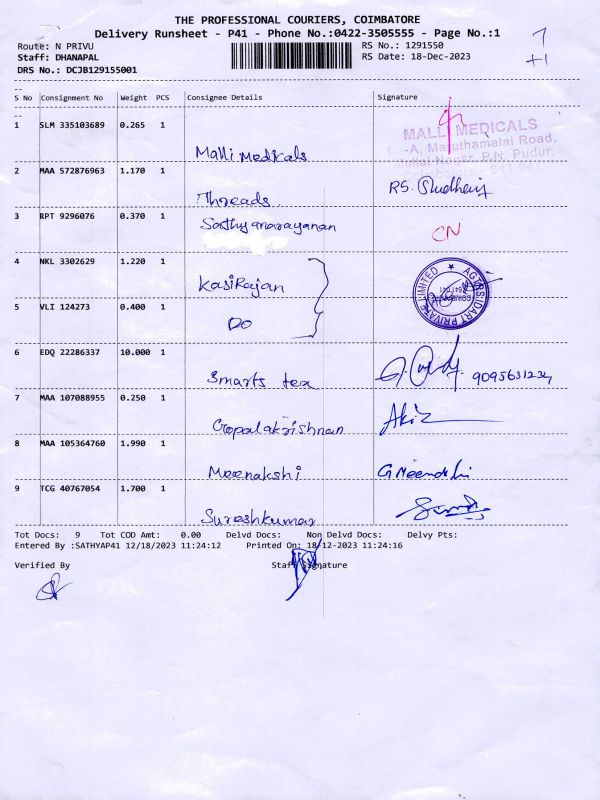 THE PROFESSIONAL COURIERS, COIMBATORE
Delivery Runsheet - P41 - Phone No.:0422-3505555 - Page No.:1
Route: N PRIVU RS No.: 1291550
Staff: DHANAPAL RS Date: 18-Dec-2023
DRS No.: DCJB129155001
7
+1
S No Consignment No Weight PCS Consignee Details Signature
1 SLM 335103689 0.265 1 Malli Medicals
MALLI MEDICALS
-A, Maruthamalai Road,
P.N. Pudur,
2 MAA 572876963 1.170 1 Threads
3 RPT 9296076 0.370 1 Sathyanarayanan CN
4 NKL 3302629 1.220 1 Kasirajan
PRIVATE LIMITED
5 VLI 124273 0.400 1 DO
6 EDQ 22286337 10.000 1 Smarts tea
7 MAA 107088955 0.250 1 Gopalakrishnan
8 MAA 105364760 1.990 1 Meenakshi
9 TCG 40767054 1.700 1 Sureshkumar
Tot Docs: 9 Tot COD Amt: 0.00 Delvd Docs: Non Delvd Docs: Delvy Pts:
Entered By :SATHYAP41 12/18/2023 11:24:12 Printed On: 18-12-2023 11:24:16
Verified By Staff Signature